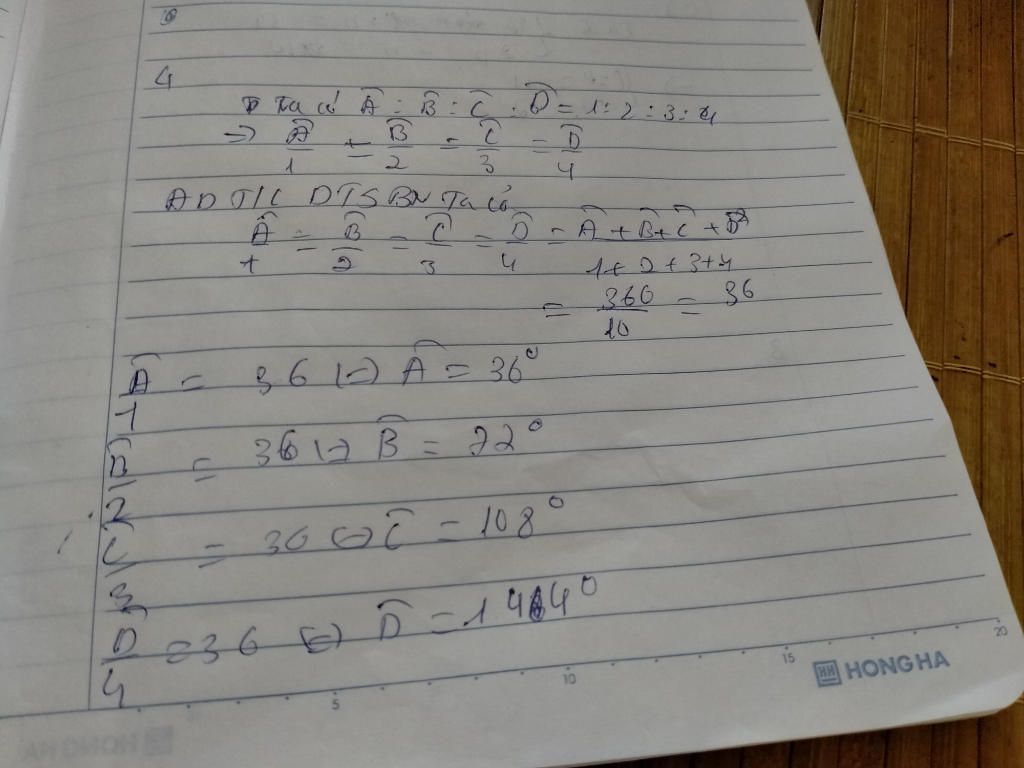 4
Ta có Â : B̂ : Ĉ : D̂ = 1 : 2 : 3 : 4
=> Â/1 = B̂/2 = Ĉ/3 = D̂/4
AD T/C DTSBN Ta có
Â/1 = B̂/2 = Ĉ/3 = D̂/4 = (Â + B̂ + Ĉ + D̂)/(1 + 2 + 3 + 4)
= 360/10 = 36
Â/1 = 36 (=) Â = 36°
B̂/2 = 36 (=) B̂ = 72°
Ĉ/3 = 36 (=) Ĉ = 108°
D̂/4 = 36 (=) D̂ = 144°
5 10 15 20
HONG HA